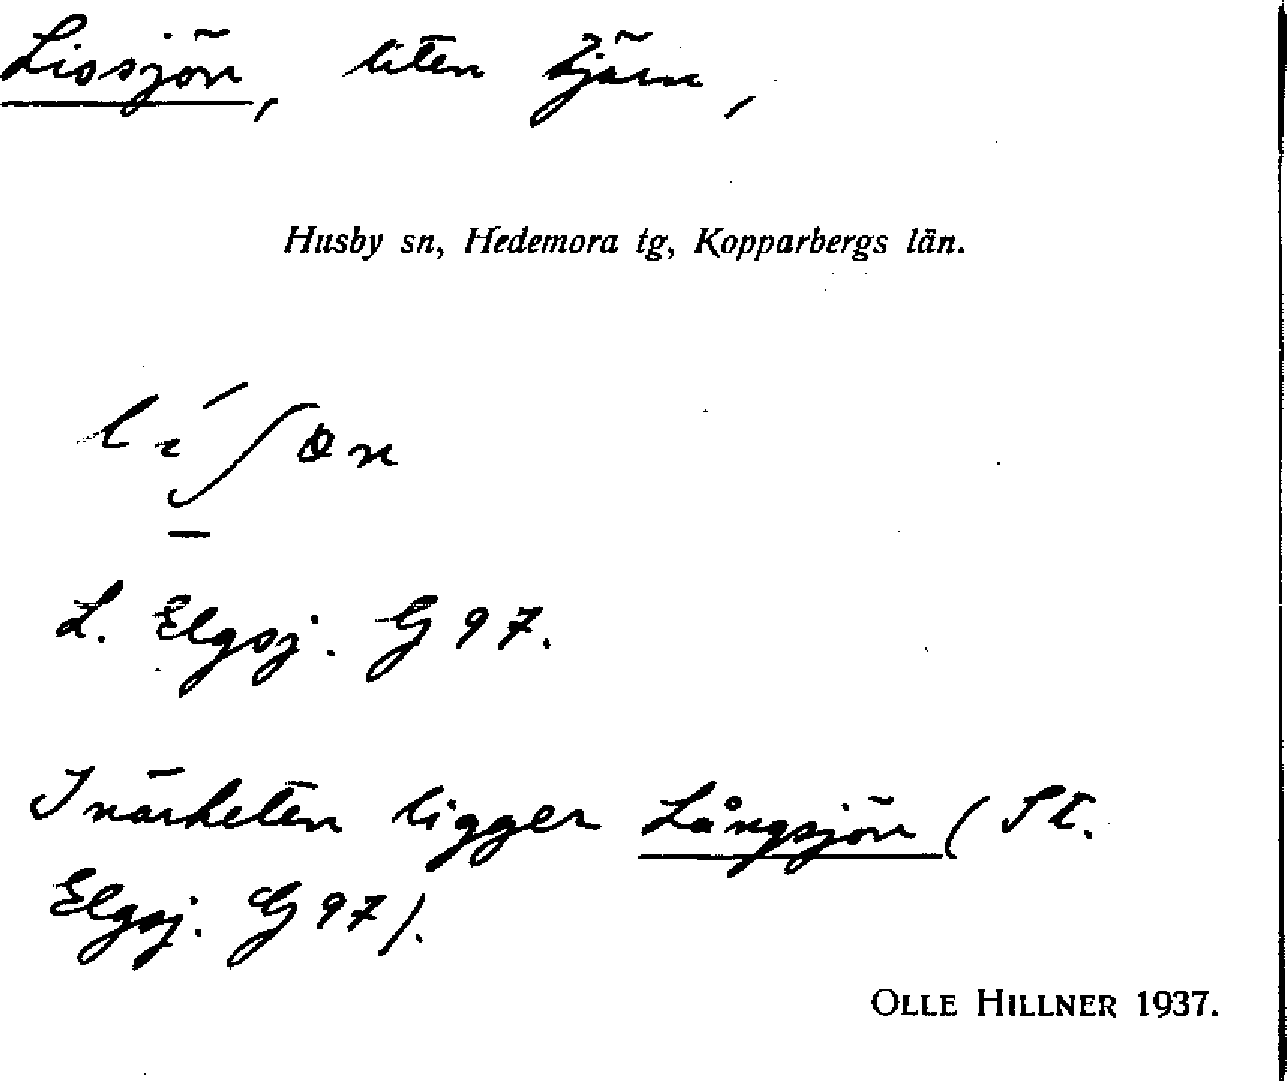 Lissjön, liten tjärn,
Husby sn, Hedemora tg, Kopparbergs län.
L. Elgsj. G 97.
I närheten ligger Långsjön (St.
Elgsj. G 97).
OLLE HILLNER 1937.